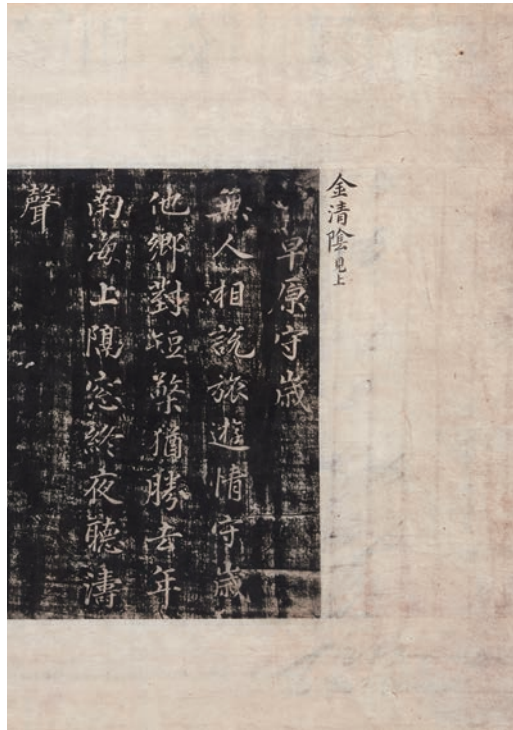 金清陰見上
早原守歲
無人相說旅遊情守歲
他鄉對短檠猶勝去年
南海上隔窓終夜聽濤
聲